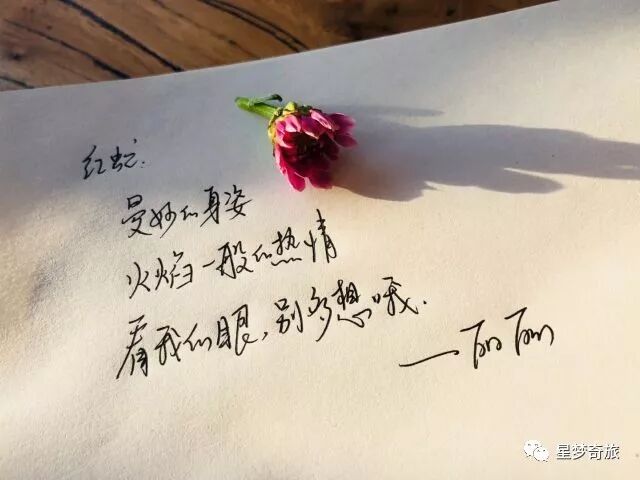 红蛇.
曼妙的身姿
火焰一般的热情
看我的眼,别多想哦.
—丽丽
星梦奇旅